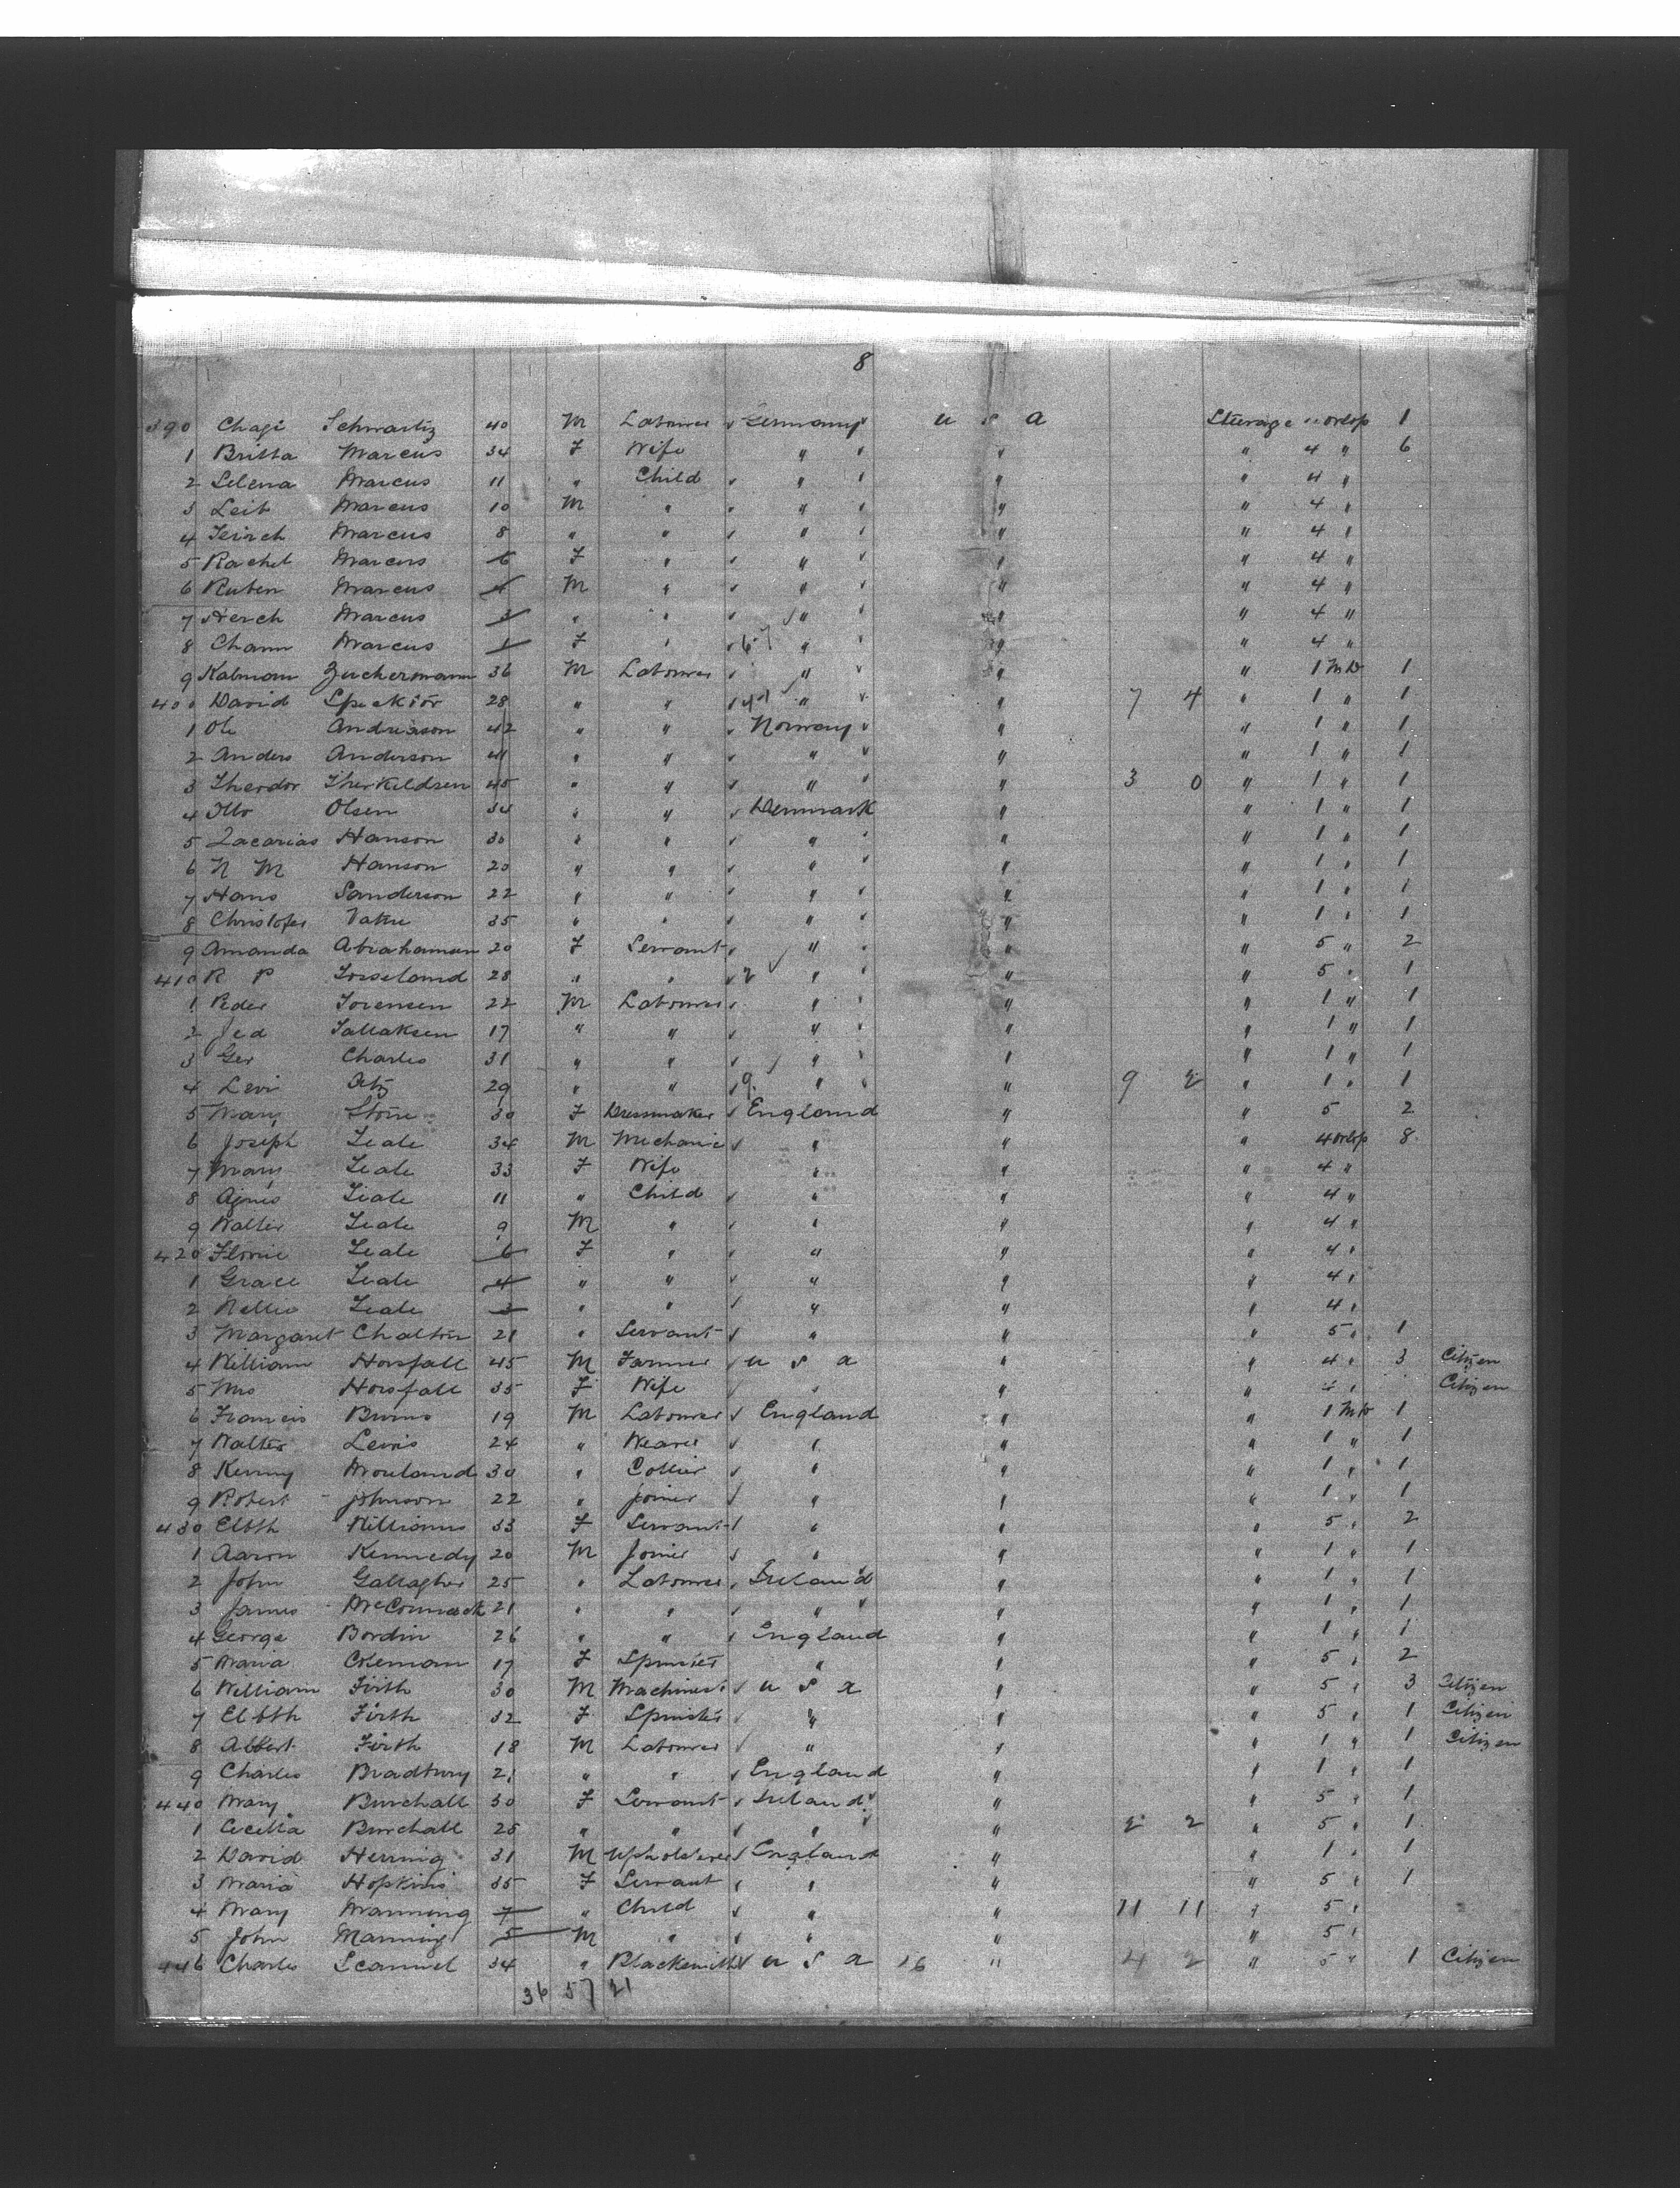 8
390 Chagi Schwartz 40 M Labourer Germany u s a Steerage " orlop 1
1 Britta Marcus 34 F Wife " " " 4 " 6
2 Selena Marcus 11 " Child " " " 4 "
3 Leib Marcus 10 M " " " " 4 "
4 Marcus 8 " " " " " 4 "
5 Rachel Marcus 6 F " " " " 4 "
6 Ruben Marcus 4 M " " " " 4 "
7 Herch Marcus 3 " " " " " 4 "
8 Chann Marcus 1 F " 6.7 " " " 4 "
9 Kalmann Zuckermann 36 M Labourer " " " 1 M D 1
400 David Spektor 28 " " " " 7 4 " 1 " 1
1 Ole Andreason 42 " " Norway " " 1 " 1
2 Anders Anderson 41 " " " " " 1 " 1
3 Theodor Therkildsen 45 " " " " 3 0 " 1 " 1
4 Otto Olsen 34 " " Denmark " " 1 " 1
5 Zacarias Hanson 30 " " " " " 1 " 1
6 N M Hanson 20 " " " " " 1 " 1
7 Hans Sanderson 22 " " " " " 1 " 1
8 Christofer 35 " " " " " 1 " 1
9 Amanda Abrahamsen 20 F Servant " " " 5 " 2
410 R P 28 " " 2 " " " 5 " 1
1 Peder Sorensen 22 M Labourer " " " 1 " 1
2 Jed Tallaksen 17 " " " " " 1 " 1
3 Ger Charles 31 " " " " " 1 " 1
4 Levi 29 " " 9. " " 9 2 " 1 " 1
5 Mary Stone 30 F Dressmaker England " " 5 2
6 Joseph Teale 34 M Mechanic " " " 4 orlop 8
7 Mary Teale 33 F Wife " " " 4 "
8 Agnes Teale 11 " Child " " " 4 "
9 Walter Teale 9 M " " " " 4 "
420 Florie Teale 6 F " " " " 4 "
1 Grace Teale 4 " " " " " 4 "
2 Nellie Teale 3 " " " " " 4 "
3 Margaret Chalton 21 " Servant " " " 5 " 1
4 William Horsfall 45 M Farmer u s a " " 4 " 3 Citizen
5 Mrs Horsfall 35 F Wife " " " 4 " Citizen
6 Francis Burns 19 M Labourer England " " 1 M D 1
7 Walter Lewis 24 " Weaver " " " 1 " 1
8 Kenny Morland 30 " Collier " " " 1 " 1
9 Robert Johnson 22 " Joiner " " " 1 " 1
430 Elbth Williams 33 F Servant " " " 5 " 2
1 Aaron Kennedy 20 M Joiner " " " 1 " 1
2 John Gallagher 25 " Labourer Ireland " " 1 " 1
3 James McCormack 21 " " " " " 1 " 1
4 George Bordin 26 " " England " " 1 " 1
5 Maria Coleman 17 F Spinster " " " 5 " 2
6 William Firth 30 M Machinist u s a " " 5 " 3 Citizen
7 Elbth Firth 32 F Spinster " " " 5 " 1 Citizen
8 Albert Firth 18 M Labourer " " " 1 " 1 Citizen
9 Charles Bradbury 21 " " England " " 1 " 1
440 Mary Burchall 30 F Servant Ireland " " 5 " 1
1 Cecilia Burchall 25 " " " " 2 2 " 5 " 1
2 David Herring 31 M Upholsterer England " " 1 " 1
3 Maria Hopkins 35 F Servant " " " 5 " 1
4 Mary Manning 7 " Child " " 11 11 " 5 "
5 John Manning 5 M " " " " 5 "
446 Charles Scannel 34 " Blacksmith u s a 16 " 4 2 " 5 " 1 Citizen
36 57 21